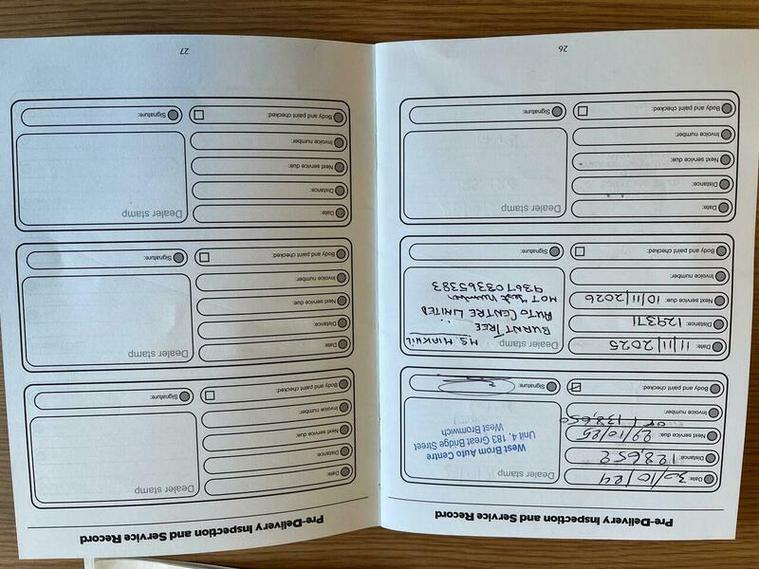 Pre-Delivery Inspection and Service Record
Date: 30/10/24
Distance: 128652
Next service due: 29/10/25
or 138,650
Invoice number:
Body and paint checked:
Dealer stamp
West Brom Auto Centre
Unit 4, 183 Great Bridge Street
West Bromwich
Signature:
Date: 11/11/2025
Distance: 129371
Next service due: 10/11/2026
Invoice number:
Body and paint checked:
Dealer stamp
BURNT TREE
AUTO CENTRE LIMITED
MOT Test Number
936703365383
Signature:
Date:
Distance:
Next service due:
Invoice number:
Body and paint checked:
Dealer stamp
Signature:
26
Pre-Delivery Inspection and Service Record
Date:
Distance:
Next service due:
Invoice number:
Body and paint checked:
Dealer stamp
Signature:
Date:
Distance:
Next service due:
Invoice number:
Body and paint checked:
Dealer stamp
Signature:
Date:
Distance:
Next service due:
Invoice number:
Body and paint checked:
Dealer stamp
Signature:
27